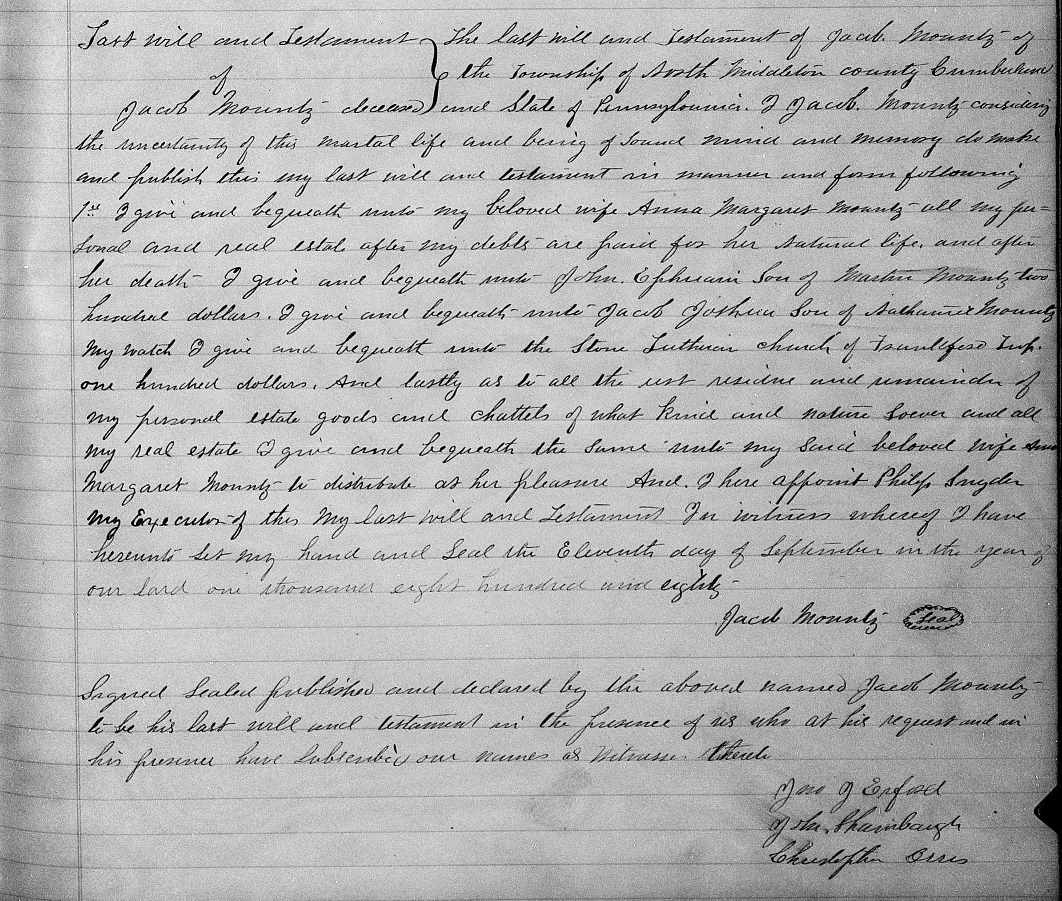 Last will and Testament } The last will and Testament of Jacob. Mountz of
of the Township of North Middleton county Cumberland
Jacob Mountz deceased and State of Pennsylvania. I Jacob. Mountz considering
the uncertainty of this mortal life and being of Sound mind and memory do make
and publish this my last will and testament in manner and form following
1st I give and bequeath unto my beloved wife Anna Margaret Mountz all my per-
sonal and real estate after my debts are paid for her Natural life. and after
her death I give and bequeath unto John. Ephraim Son of Martin Mountz two
hundred dollars. I give and bequeath unto Jacob Joshua Son of Nathaniel Mountz
My watch I give and bequeath unto the Stone Lutheran church of Frankford Twp.
one hundred dollars. And lastly as to all the rest residue and remainder of
my personal estate goods and chattels of what kind and nature Soever and all
my real estate I give and bequeath the Same unto my Said beloved wife
Margaret Mountz to distribute at her pleasure And. I here appoint Philip Snyder
my Executor of this My last will and Testament In witness whereof I have
hereunto Set my hand and Seal the Eleventh day of September in the year of
our lord one thousand eight hundred and eighty
Jacob Mountz Seal
Signed Sealed published and declared by the aboved named Jacob Mountz
to be his last will and testament in the presence of us who at his request and in
his presence have Subscribed our names as Witnesses thereto
Jno J Erford
John. Shambaugh
Christopher Orris